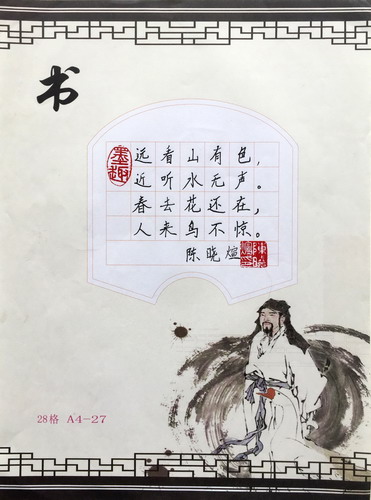 书
墨趣
远看山有色，
近听水无声。
春去花还在，
人来鸟不惊。
陈晓煊
28格 A4-27